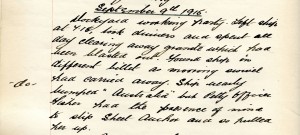 September 9th 1916
Dockyard working Party left ship
at 7.15, took dinners and spent all
day clearing away granite which had
been blasted out. Found ship in
different billet as mooring swivel
-do- had carried away. Ship nearly
bumped "Australia" but Petty Officer
had the presence of mind
to slip Sheet Anchor and so pulled
her up.